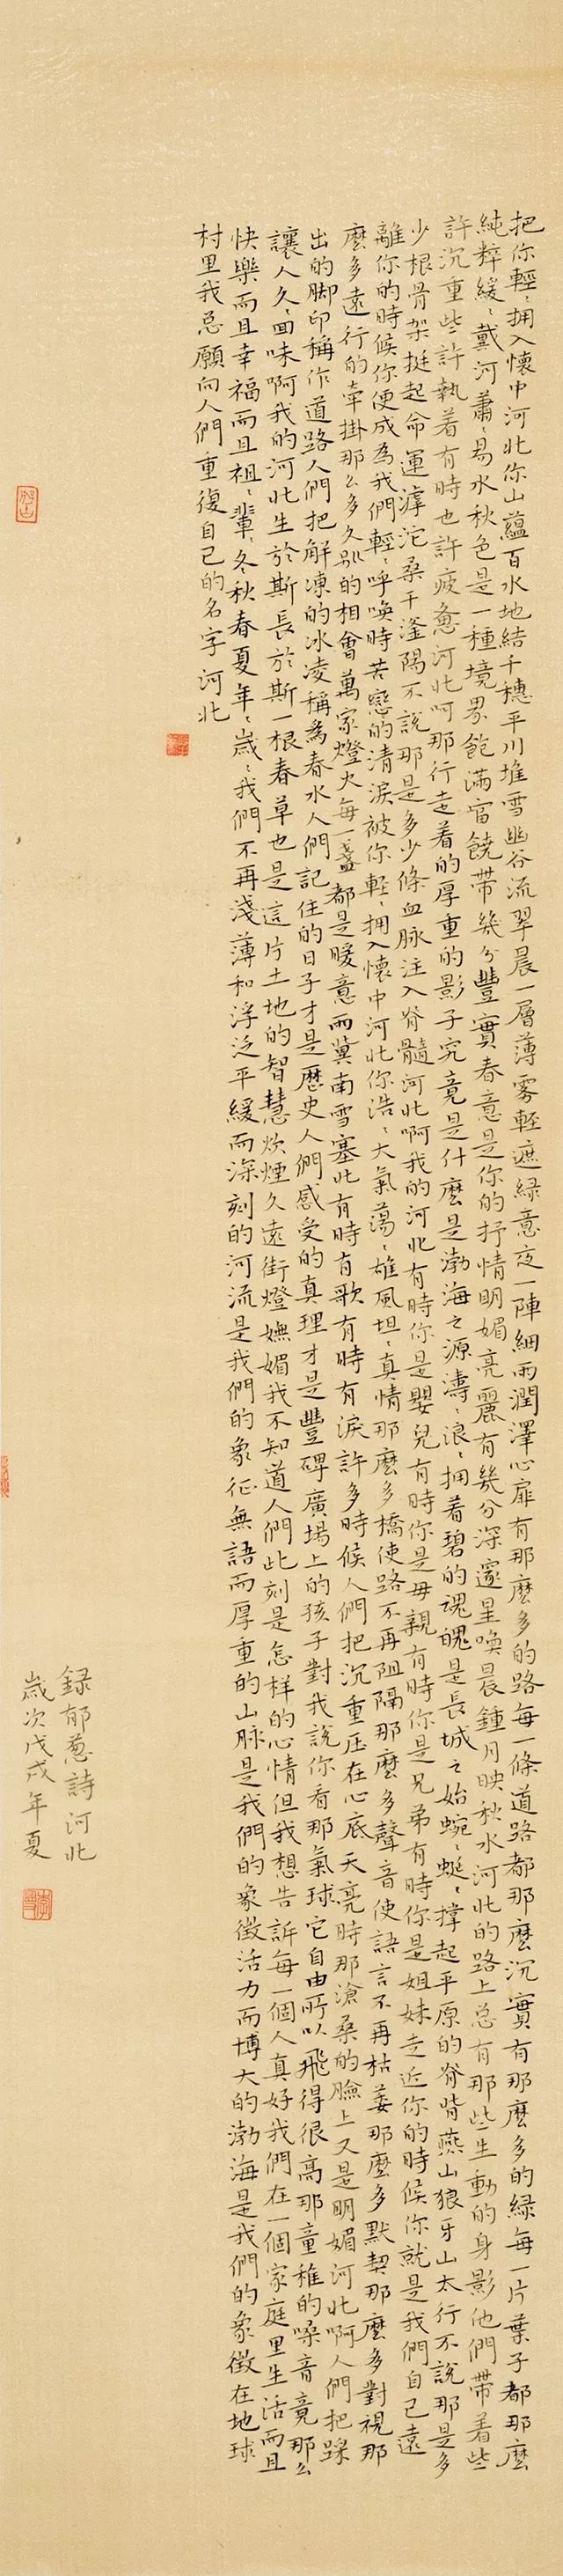 把你輕〻拥入懷中河北你山蘊百水地結千穗平川堆雪幽谷流翠晨一層薄雾輕遮緑意夜一陣細雨潤澤心扉有那麽多的路每一條道路都那麽沉實有那麽多的緑每一片葉子都那麽
純粹緩〻戴河蕭〻易水秋色是一種境界飽滿富饒帶幾分豐實春意是你的抒情明媚亮麗有幾分深邃星唤晨鐘月映秋水河北的路上总有那些生動的身影他們帶着些
許沉重些許執着有時也許疲惫河北呵那行走着的厚重的影子究竟是什麽是渤海之源濤〻浪〻拥着碧的魂魄是長城之始蜿〻蜒〻撑起平原的脊背燕山狼牙山太行不說那是多
少根骨架挺起命運滹沱桑干滏陽不說那是多少條血脉注入脊髓河北啊我的河北有時你是嬰兒有時你是母親有時你是兄弟有時你是姐妹走近你的時候你就是我們自己遠
離你的時候你便成為我們輕〻呼唤時苦戀的清淚被你輕〻拥入懷中河北你浩〻大氣蕩〻雄風坦〻真情那麽多橋使路不再阻隔那麽多聲音使語言不再枯萎那麽多默契那麽多對視那
麽多遠行的牽掛那么多久别的相會萬家燈火每一盞都是暖意而冀南雪塞北有時有歌有時有淚許多時候人們把沉重压在心底天亮時那滄桑的臉上又是明媚河北啊人們把踩
出的脚印稱作道路人們把解凍的冰凌稱為春水人們記住的日子才是歷史人們感受的真理才是豐碑廣場上的孩子對我說你看那氣球它自由所以飛得很高那童稚的嗓音竟那么
讓人久〻回味啊我的河北生於斯長於斯一根春草也是這片土地的智慧炊煙久遠街燈嫵媚我不知道人們此刻是怎样的心情但我想告訴每一個人真好我們在一個家庭里生活而且
快樂而且幸福而且祖〻輩〻冬秋春夏年〻歲〻我們不再淺薄和浮泛平緩而深刻的河流是我們的象征無語而厚重的山脉是我們的象徵活力而博大的渤海是我們的象徵在地球
村里我总願向人們重復自己的名字河北
録郁葱詩河北
歲次戊戌年夏